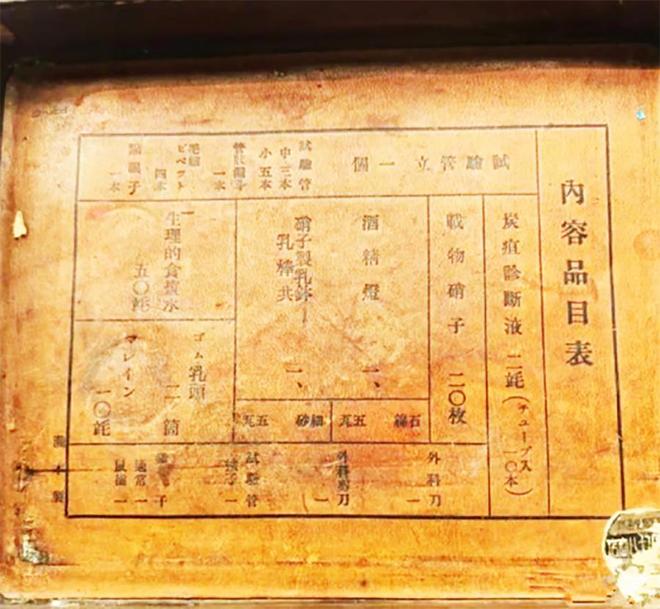 內容品目表
炭疽診斷液 二竓(チューブ入一〇本)
試驗管立一個
載物硝子 二〇枚
酒精燈 一、
硝子製乳鉢 一、
乳棒共
石綿 五瓦
細砂 五瓦
試驗管
中三本
小五本
一本
毛細
ピペット
四本
子
一本
生理的食鹽水
五〇竓
ゴム乳頭
二箇
マレイン
一〇竓
外科刀 一
外科剪刀 一
試驗管
鋏子 一
通常 一